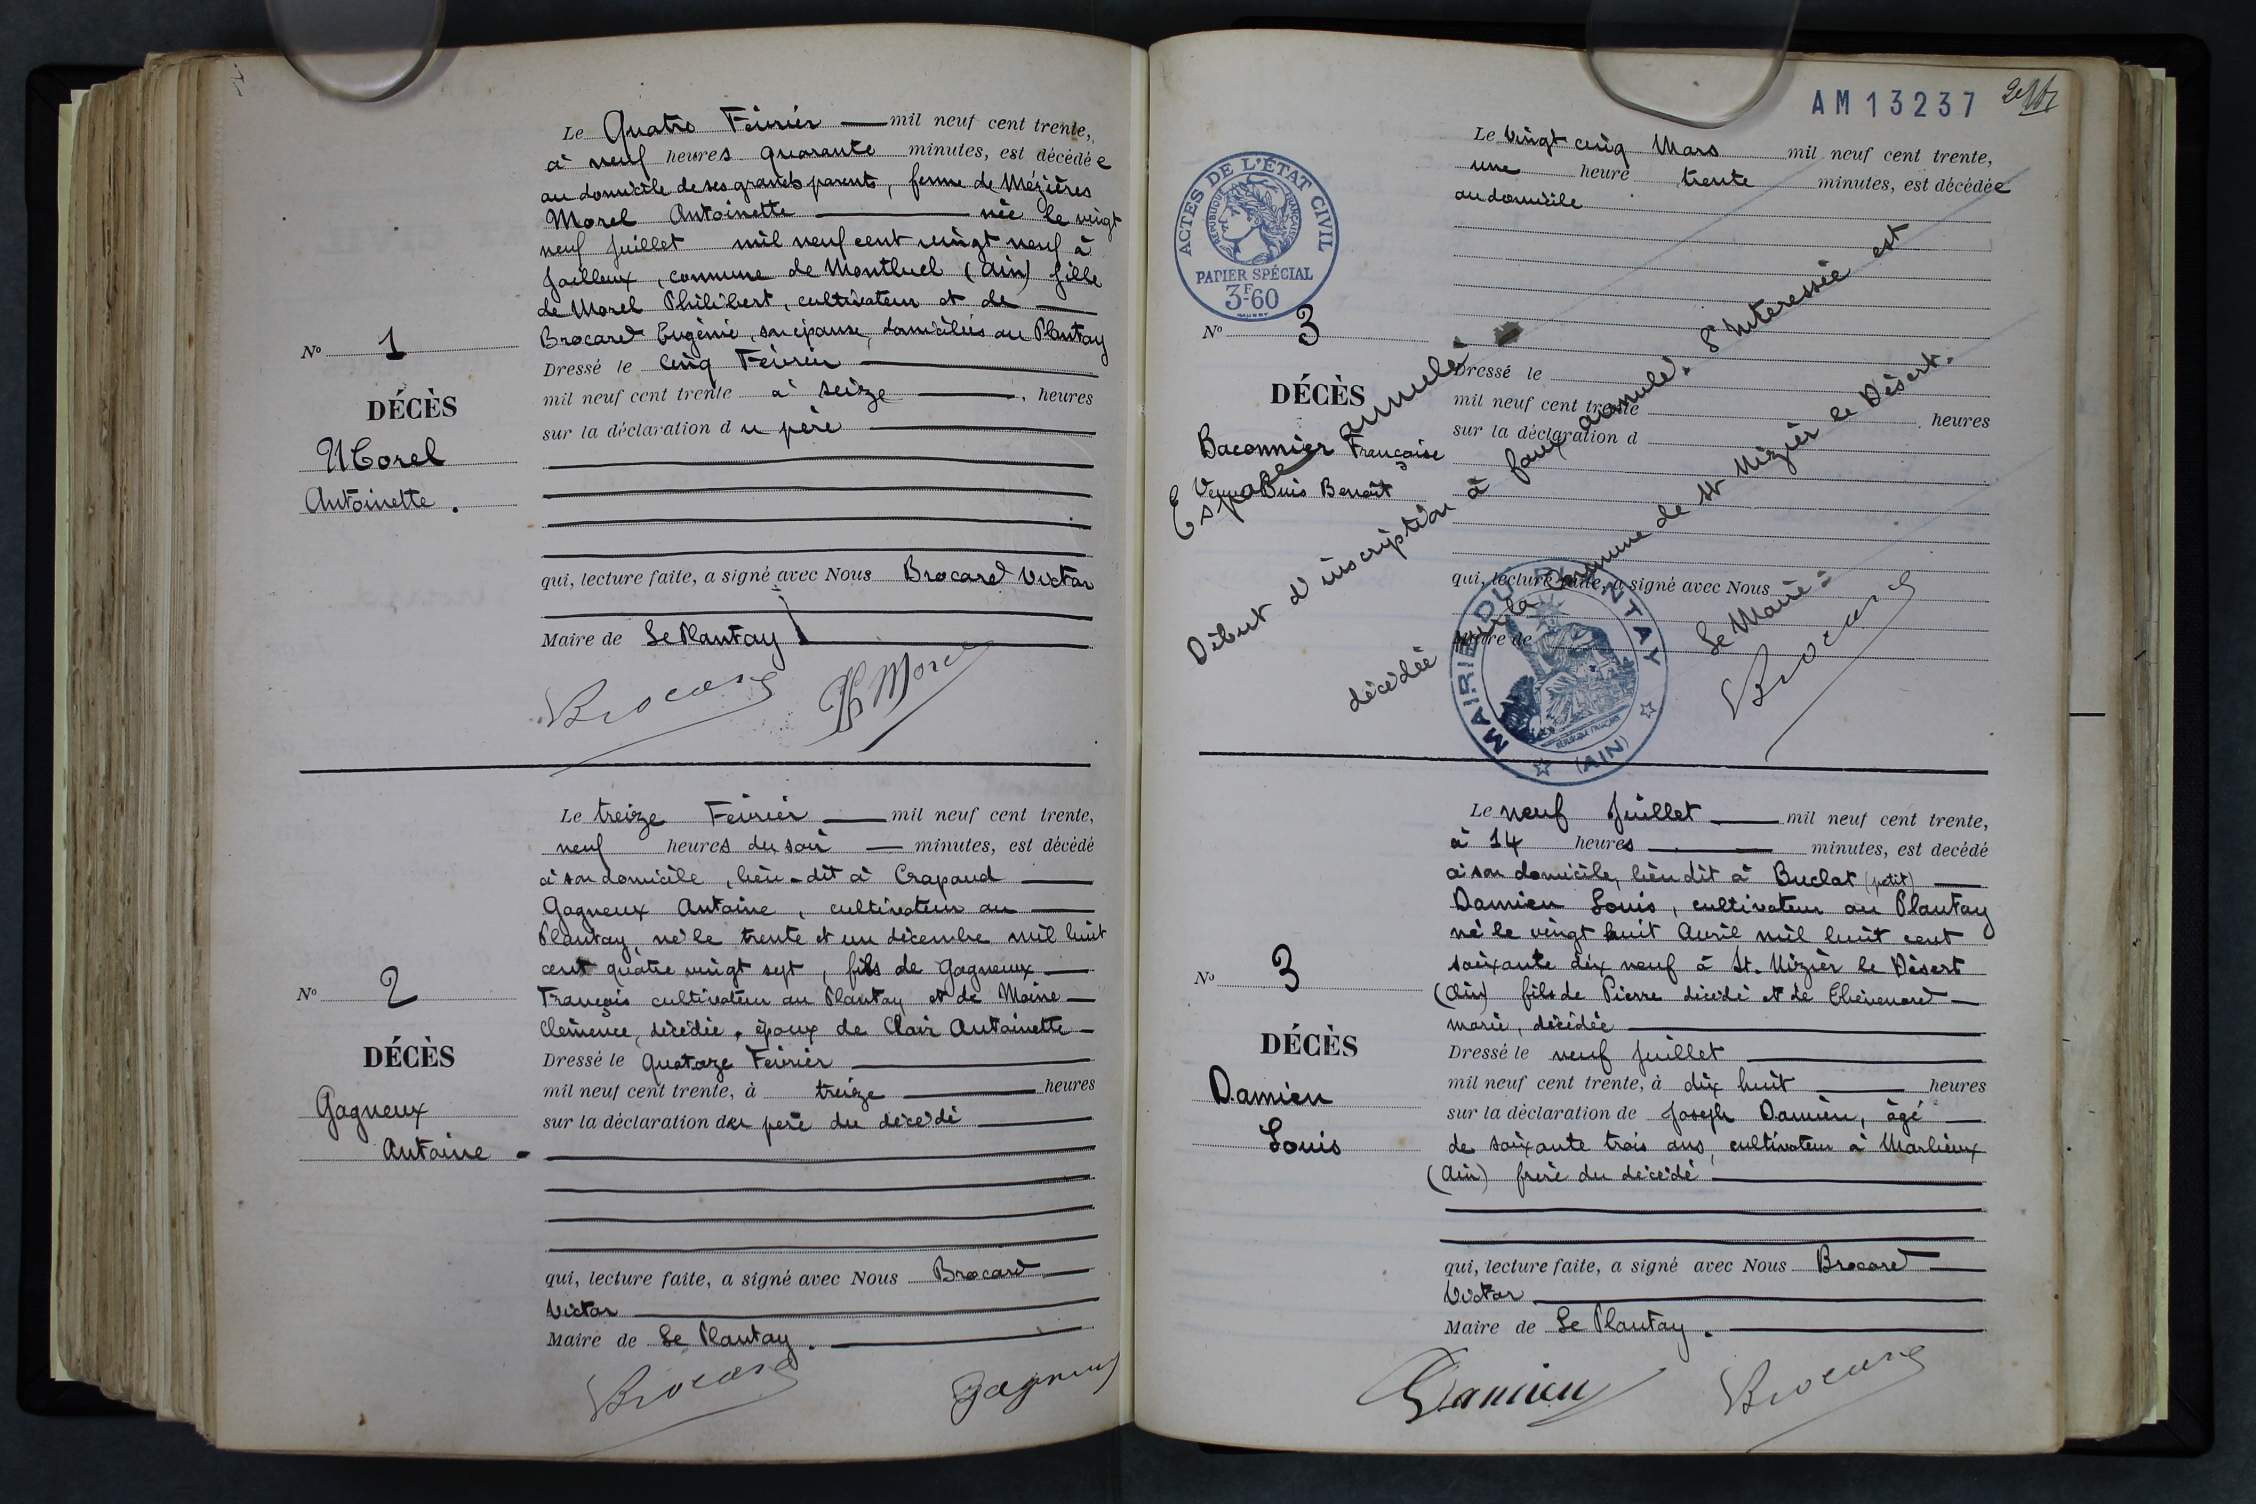 Le Quatre Février mil neuf cent trente,
à neuf heures quarante minutes, est décédée
au domicile de ses grands parents, ferme de Mézières
Morel Antoinette née le vingt
neuf Juillet mil neuf cent vingt neuf à
Jailleux, commune de Montluel (Ain) fille
de Morel Philibert, cultivateur et de
Brocard Eugénie, son épouse, domiciliés au Plantay
N° 1
Dressé le Cinq Février
mil neuf cent trente à seize, heures
DÉCÈS
sur la déclaration du père
Morel
Antoinette.
qui, lecture faite, a signé avec Nous Brocard Victor
Maire de Le Plantay
Brocard Ph Morel
Le treize Février mil neuf cent trente,
neuf heures du soir minutes, est décédé
à son domicile, lieu-dit à Crapaud
Gagneux Antoine, cultivateur au
Plantay, né le trente et un décembre mil huit
cent quatre vingt sept, fils de Gagneux
N° 2
François cultivateur au Plantay et de Moine
Clémence, décédée, époux de Clair Antoinette
DÉCÈS
Dressé le quatorze Février
mil neuf cent trente, à treize heures
Gagneux
sur la déclaration du père du décédé
Antoine
qui, lecture faite, a signé avec Nous Brocard
Victor
Maire de Le Plantay.
Brocard Gagneux
AM13237
Le Vingt cinq Mars mil neuf cent trente,
une heure trente minutes, est décédée
au domicile
ACTES DE L'ÉTAT CIVIL
RÉPUBLIQUE FRANÇAISE
PAPIER SPÉCIAL
3F60
N° 3
Dressé le
DÉCÈS
mil neuf cent trente heures
sur la déclaration d
Baconnier Française
Veuve Buis Benoît
Espace annulé
Début d'inscription à faux annulé. L'intéressée est
décédée sur la Commune de St Nizier le Désert.
qui, lecture faite, a signé avec Nous
Maire de
Le Maire:
Brocard
MAIRIE DU PLANTAY
RÉPUBLIQUE FRANÇAISE
(AIN)
Le neuf Juillet mil neuf cent trente,
à 14 heures minutes, est decédé
à son domicile, lieu dit à Buclat (petit)
Damien Louis, cultivateur au Plantay
né le vingt huit Avril mil huit cent
soixante dix neuf à St. Nizier le Désert
N° 3
(Ain) fils de Pierre décédé et de Thévenard
marie, décédée
DÉCÈS
Dressé le neuf Juillet
mil neuf cent trente, à dix huit heures
Damien
sur la déclaration de Joseph Damien, âgé
Louis
de soixante trois ans, cultivateur à Marlieux
(Ain) frère du décédé
qui, lecture faite, a signé avec Nous Brocard
Victor
Maire de Le Plantay.
Damien Brocard